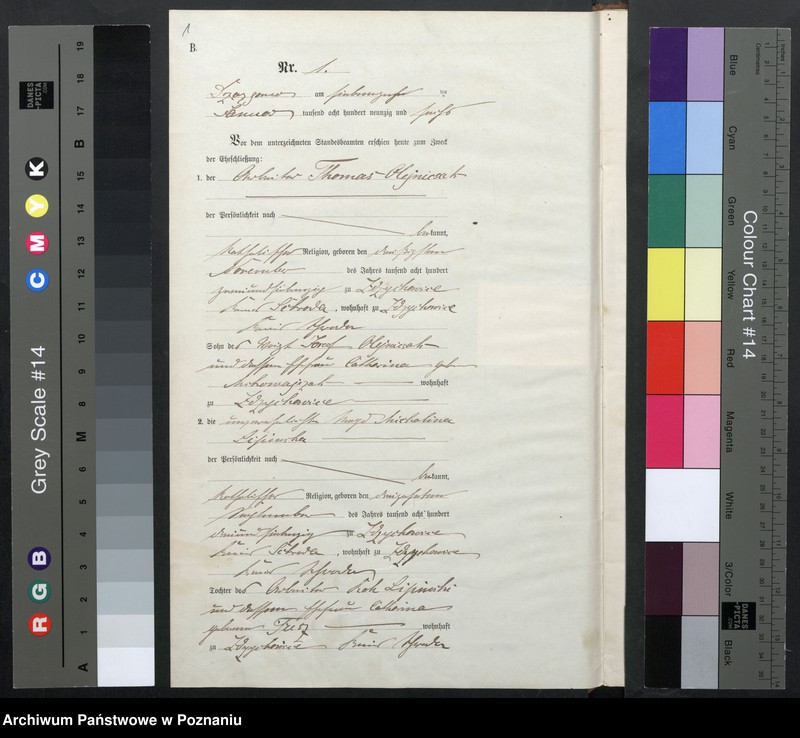 1
B.
Nr. 1.
am siebenzehnten
Januar tausend acht hundert neunzig und sechs
Vor dem unterzeichneten Standesbeamten erschien heute zum Zweck
der Eheschließung:
1. der Arbeiter Thomas Olejniczak
der Persönlichkeit nach
bekannt,
katholischer Religion, geboren den dreißigsten
November des Jahres tausend acht hundert
zweiundsiebenzig zu Zdzychowice
Kreis Schroda, wohnhaft zu Zdzychowice
Kreis Schroda
Sohn des Voigt Josef Olejniczak
und dessen Ehefrau Catharina geb
wohnhaft
zu Zdzychowice
2. die unverehelichte Magd Michalina
Lisiecka
der Persönlichkeit nach
bekannt,
katholischer Religion, geboren den dreizehnten
September des Jahres tausend acht hundert
dreiundsiebenzig zu Zdzychowice
Kreis Schroda, wohnhaft zu Zdzychowice
Kreis Schroda
Tochter des Arbeiter Roch
und dessen Ehefrau Catharina
geborene wohnhaft
zu Zdzychowice Kreis Schroda
Grey Scale #14
DANES
-PICTA
.COM
A 1 2 3 4 5 6 M 8 9 10 11 12 13 14 15 B 17 18 19
R G B
C M Y K
Colour Chart #14
Blue
Cyan
Green
Yellow
Red
Magenta
White
3/Color
Black
Centimetres
Inches
DANES
-PICTA
.COM
Archiwum Państwowe w Poznaniu